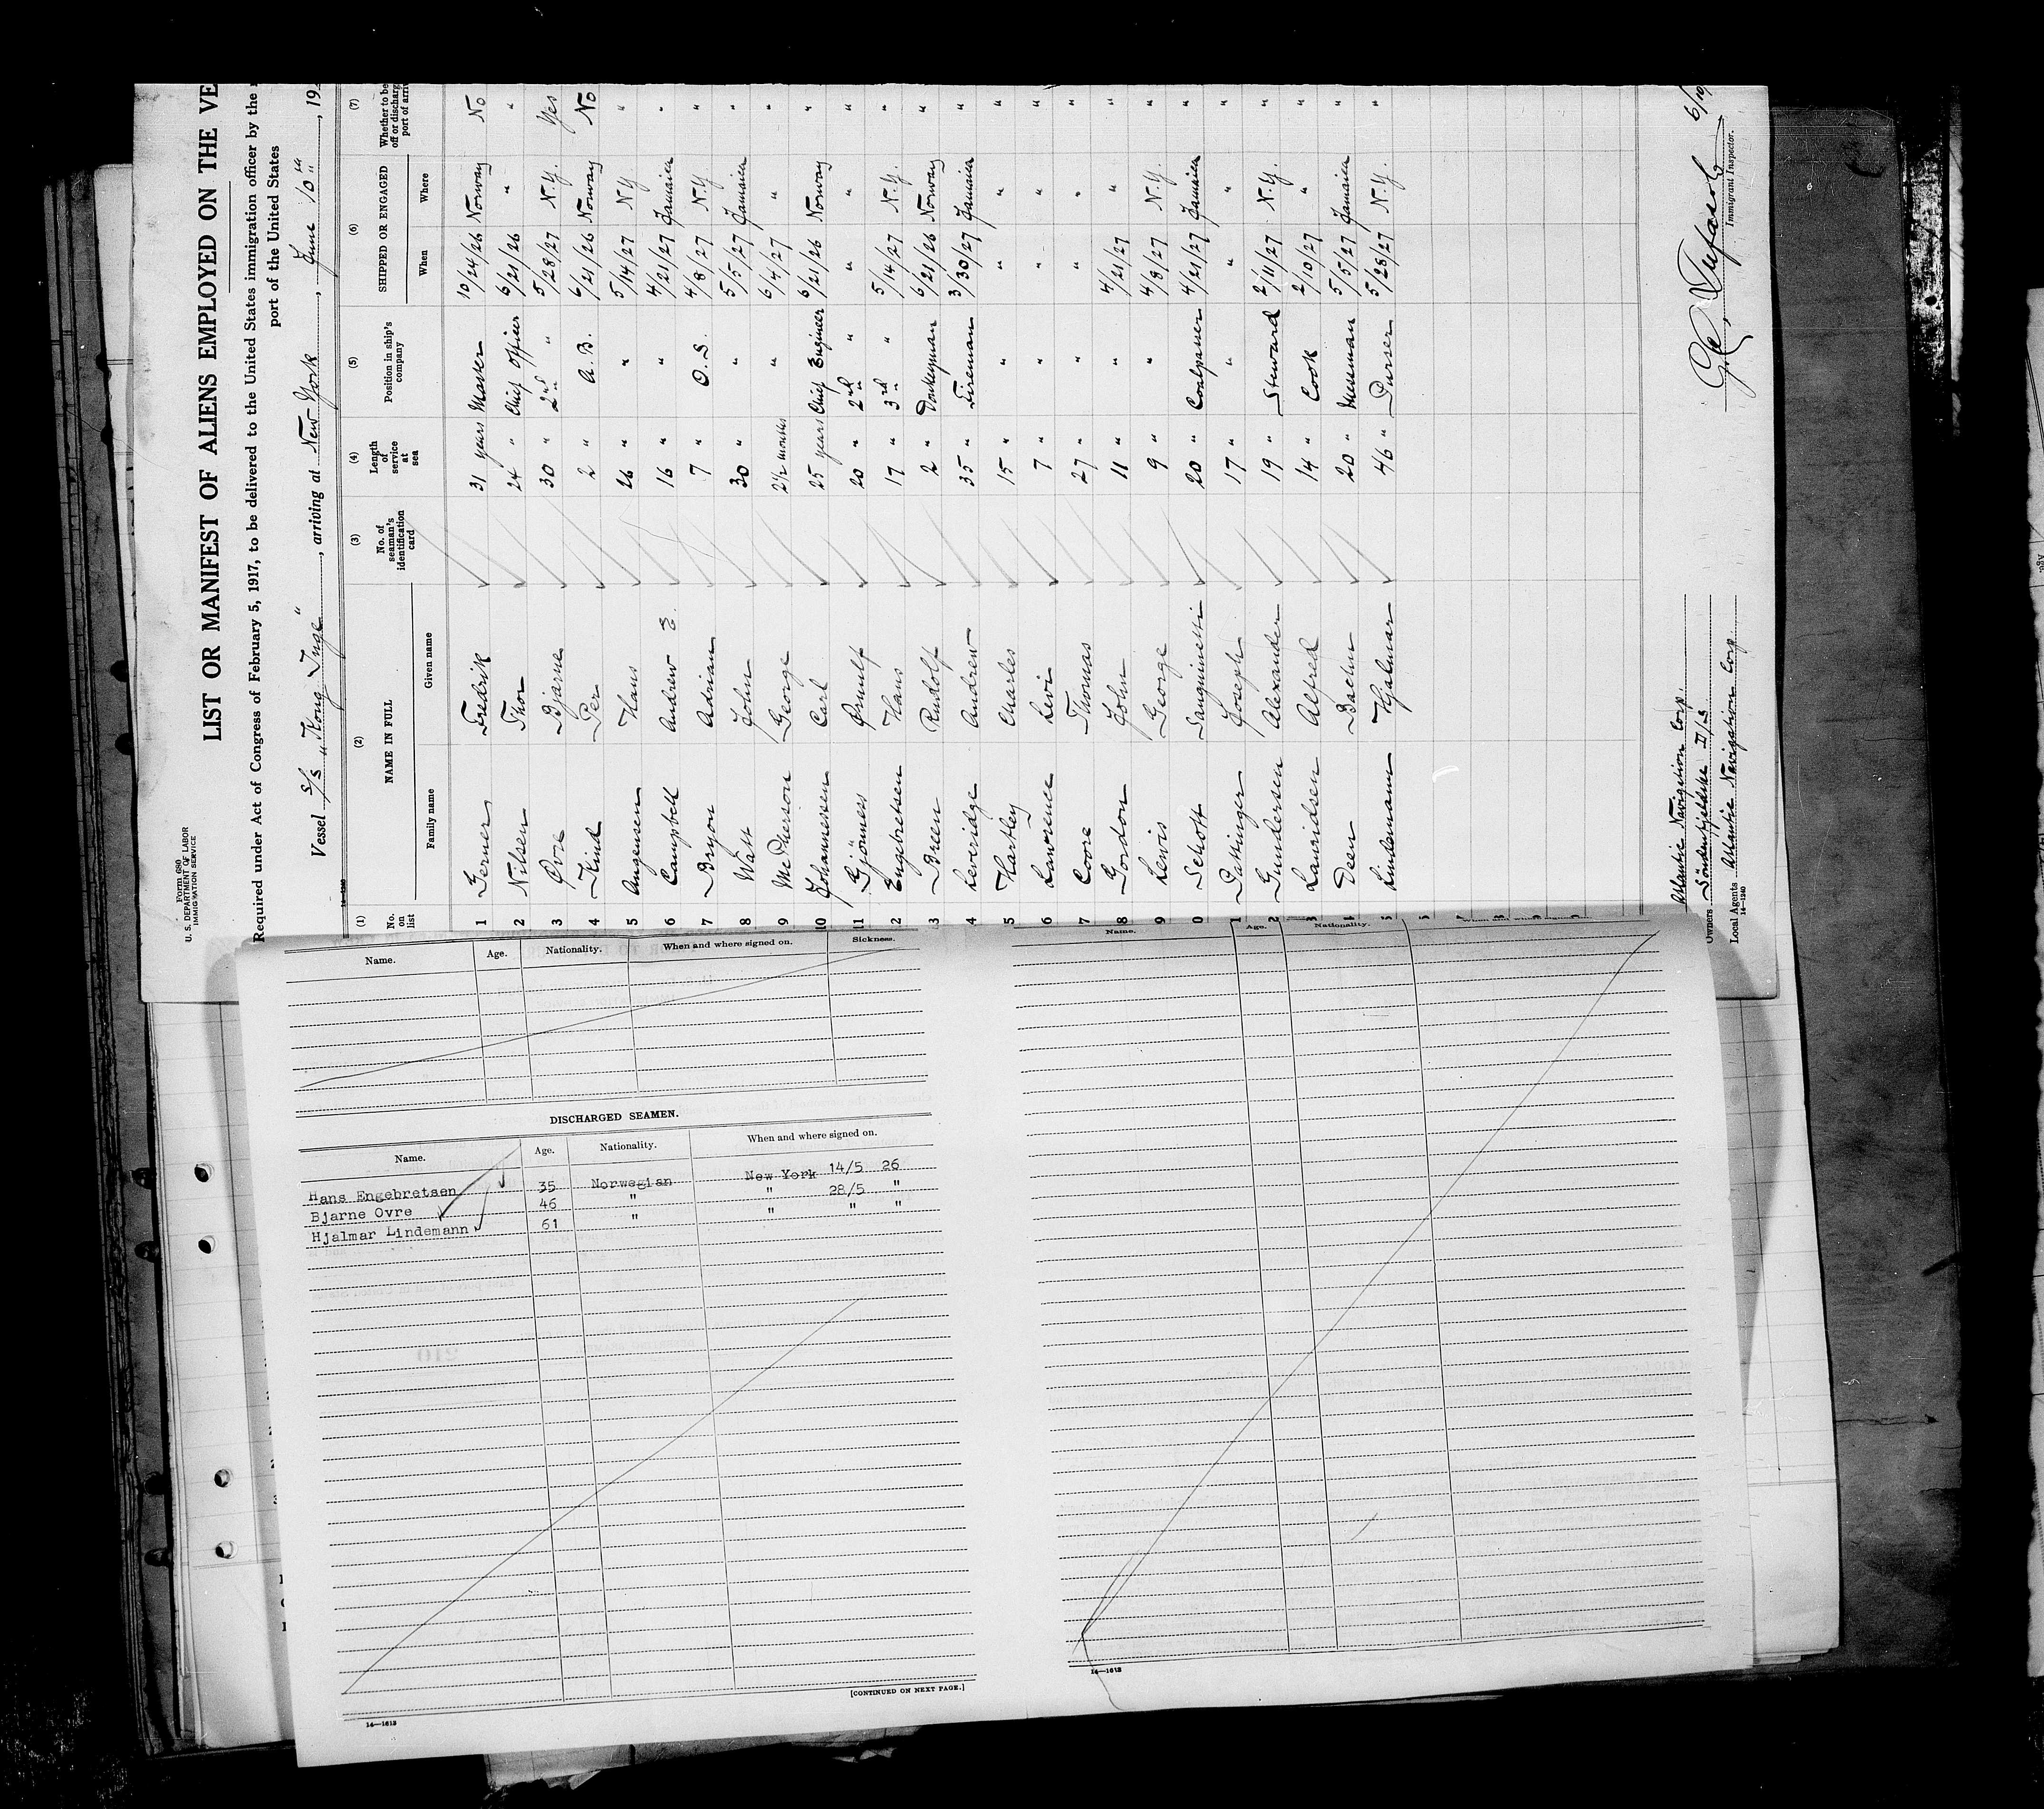 Form 680
U. S. DEPARTMENT OF LABOR
IMMIGRATION SERVICE
LIST OR MANIFEST OF ALIENS EMPLOYED ON THE VE
Required under Act of Congress of February 5, 1917, to be delivered to the United States immigration officer by the
port of the United States
Vessel S/S "Kong Inge", arriving at New York, June 10th, 19
(1) (2) (3) (4) (5) (6) (7)
No. on list NAME IN FULL No. of seaman's identification card Length of service at sea Position in ship's company SHIPPED OR ENGAGED Whether to be off or discharg port of arriv
Family name Given name When Where
1 Gerner Fredrik 31 years Master 10/24/26 Norway No
2 Nilsen Thor 24 " Chief Officer 6/21/26 " "
3 Øvre Bjarne 30 " 2nd " 5/28/27 N.Y. Yes
4 Kind Per 2 " A.B. 6/21/26 Norway No
5 Augensen Hans 26 " " 5/14/27 N.Y. "
6 Campbell Andrew 3 16 " " 4/21/27 Jamaica "
7 Bryon Adrian 7 " O.S. 4/8/27 N.Y. "
8 Watt John 30 " " 5/5/27 Jamaica "
9 McPherson George 2½ months " 6/4/27 " "
10 Johannessen Carl 25 years Chief Engineer 6/21/26 Norway "
11 Gjönnes Ørnulf 20 " 2nd " " " "
12 Engebretsen Hans 17 " 3rd " 5/14/27 N.Y. "
3 Breen Rudolf 2 " Donkeyman 6/21/26 Norway "
4 Leveridge Andrew 35 " Fireman 3/30/27 Jamaica "
5 Hartley Charles 15 " " " " "
6 Lawrence Levi 7 " " " " "
7 Coore Thomas 27 " " " " "
8 Gordon John 11 " " 4/21/27 " "
9 Lewis George 9 " " 4/8/27 N.Y. "
0 Schott Sanguinetti 20 " Coalpasser 4/21/27 Jamaica "
1 Pattinger Joseph 17 " " " " "
2 Gundersen Alexander 19 " Steward 2/11/27 N.Y. "
3 Lauridsen Alfred 14 " Cook 2/10/27 " "
4 Deen Bachn 20 " Messman 5/5/27 Jamaica "
5 Lindemann Hjalmar 46 " Purser 5/28/27 N.Y. "
Atlantic Navigation Corp.
Owners Söndenfjeldske D/S
Local Agents Atlantic Navigation Corp
14-1240
6/10/
Immigrant Inspector.
Name. Age. Nationality. When and where signed on. Sickness.
DISCHARGED SEAMEN.
Name. Age. Nationality. When and where signed on.
Hans Engebretsen 35 Norwegian New York 14/5 26
Bjarne Ovre 46 " " 28/5 "
Hjalmar Lindemann 61 " " " "
[CONTINUED ON NEXT PAGE.]
14—1613
Name. Age. Nationality.
14—1613